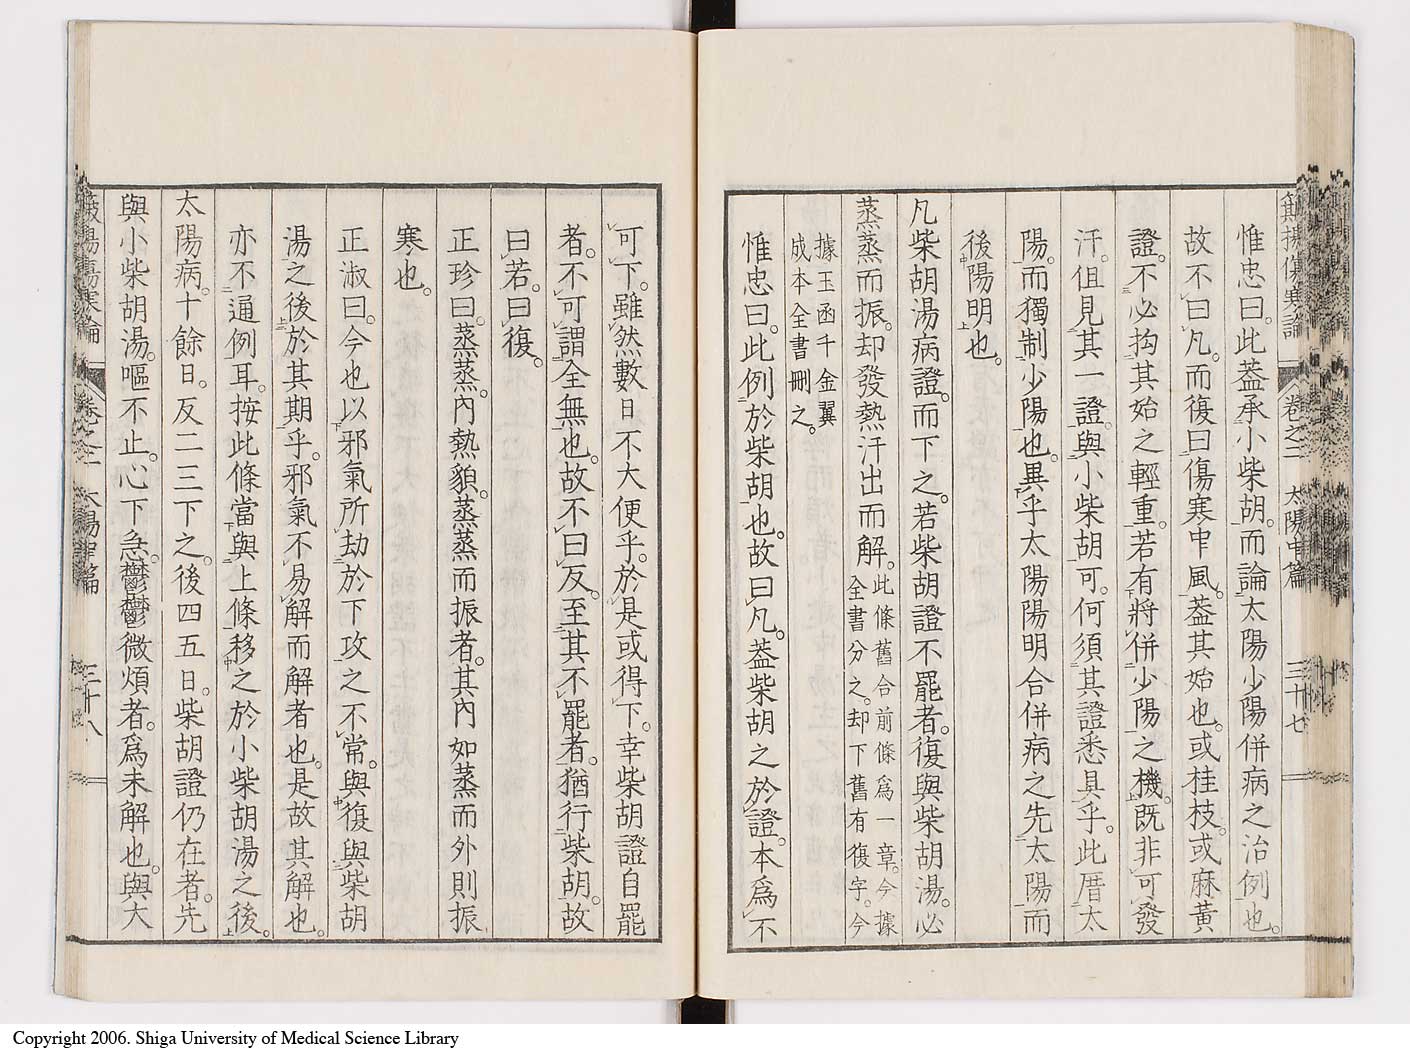 惟忠曰。此葢承小柴胡。而論太陽少陽併病之治例也。
故不曰凡。而復曰傷寒中風。葢其始也。或桂枝。或麻黃
證。不必拘其始之輕重。若有將併少陽之機。既非可發
汗。但見其一證與小柴胡可。何須其證悉具乎。此厝太
陽。而獨制少陽也。異乎太陽陽明合併病之先太陽而
後陽明也。
凡柴胡湯病證。而下之。若柴胡證不罷者。復與柴胡湯。必
蒸蒸而振。却發熱汗出而解。此條舊合前條爲一章。今據
全書分之。却下舊有復字。今
據玉函千金翼
成本全書刪之。
惟忠曰。此例於柴胡也。故曰凡。葢柴胡之於證。本爲不
太陽中篇
三十七
可下。雖然數日不大便乎。於是或得下。幸柴胡證自罷
者。不可謂全無也。故不曰反。至其不罷者。猶行柴胡。故
曰若。曰復。
正珍曰。蒸蒸。內熱貌。蒸蒸而振者。其內如蒸而外則振
寒也。
正淑曰。今也以邪氣所劫於下攻之不常。與復與柴胡
湯之後於其期乎。邪氣不易解而解者也。是故其解也。
亦不逼例耳。按此條當與上條移之於小柴胡湯之後。
太陽病。十餘日。反二三下之。後四五日。柴胡證仍在者。先
與小柴胡湯。嘔不止。心下急。鬱鬱微煩者。爲未解也。與大
三十八
Copyright 2006. Shiga University of Medical Science Library